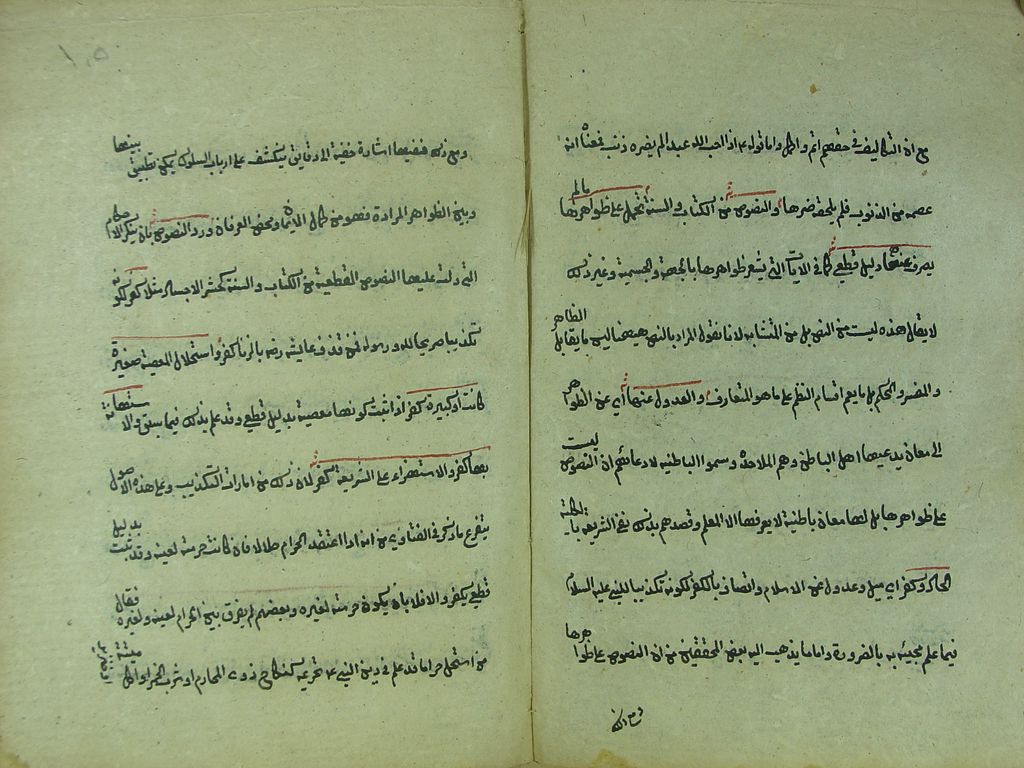 مع ان التكاليف في حقهم اتم واكمل واما قوله عم اذا احب الله عبدا لم يضره ذنب فمعناه انه
عصمه من الذنوب فلم يلحقه ضررها والنصوص من الكتاب والسنة تحمل على ظواهرها مالم
يصرف عنها دليل قطعي كما في الايات التي يشعر ظواهرها بالجهة والجسمية وغير ذلك
لا يقال هذه ليست من النص بل من المتشابه لانا نقول المراد بالنص ههنا ليس ما يقابل الظاهر
والمفسر والمحكم بل ما يعم اقسام النظم على ما هو المتعارف والعدول عنها أي عن الظواهر
الى معان يدعيها اهل الباطن وهم الملاحدة وسموا الباطنية لادعائهم ان النصوص ليست
على ظواهرها بل لها معان باطنية لا يعرفها الا المعلم وقصدهم بذلك نفي الشريعة بالكلية
الحاد وكفر اي ميل وعدول عن الاسلام واتصاف بالكفر لكونه تكذيبا للنبي عليه السلام
فيما علم مجيئه به بالضرورة واما ما يذهب اليه بعض المحققين من ان النصوص على ظواهرها
ومع ذلك
ومع ذلك ففيها اشارة خفية الى دقايق ينكشف على ارباب السلوك يمكن تطبيق بينها
وبين الظواهر المرادة فهو من كمال الايمان ومحض العرفان ورد النصوص بان ينكر الاحكام
التي دلت عليها النصوص القطعية من الكتاب والسنة كحشر الاجساد مثلا كفر لكونه
تكذيبا صريحا لله ورسوله فمن قذف عايشه رضه بالزنا كفر واستحلال المعصية صغيرة
كانت او كبيرة كفر اذا ثبت كونها معصية بدليل قطعي وقد علم ذلك فيما سبق والاستهانة
بها كفر والاستهزاء على الشريعة كفر لان ذلك من امارات التكذيب وعلى هذه الاصول
يتفرع ما ذكر في الفتاوي من انه اذا اعتقد الحرام حلالا فان كانت حرمته لعينه وقد ثبت بدليل
قطعي يكفر والا فلا بان يكون حرمته لغيره وبعضهم لم يفرق بين الحرام لعينه ولغيره فقال
من استحل حراما قد علم في دين النبي عم تحريمه كنكاح ذوى المحارم او شرب الخمر او اكل ميتة